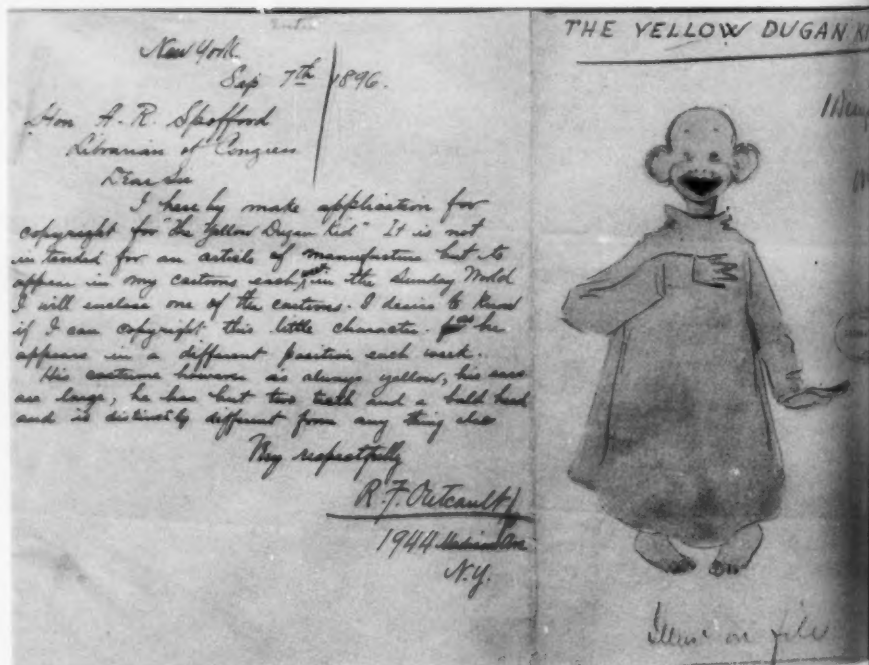 New York
Sep 7th 1896.
Hon A. R. Spofford
Librarian of Congress
Dear Sir
I hereby make application for
copyright for "The Yellow Dugan Kid" It is not
intended for an article of manufacture but to
appear in my cartoons each week in the Sunday World
I will enclose one of the cartoons. I desire to know
if I can copyright this little character. as he
appears in a different position each week.
His costume however is always yellow, his ears
are large, he has but two teeth and a bald head
and is distinctly different from any thing else
Very respectfully
R. F. Outcault
1944 Madison Ave
N.Y.
THE YELLOW DUGAN KI
Illus on file